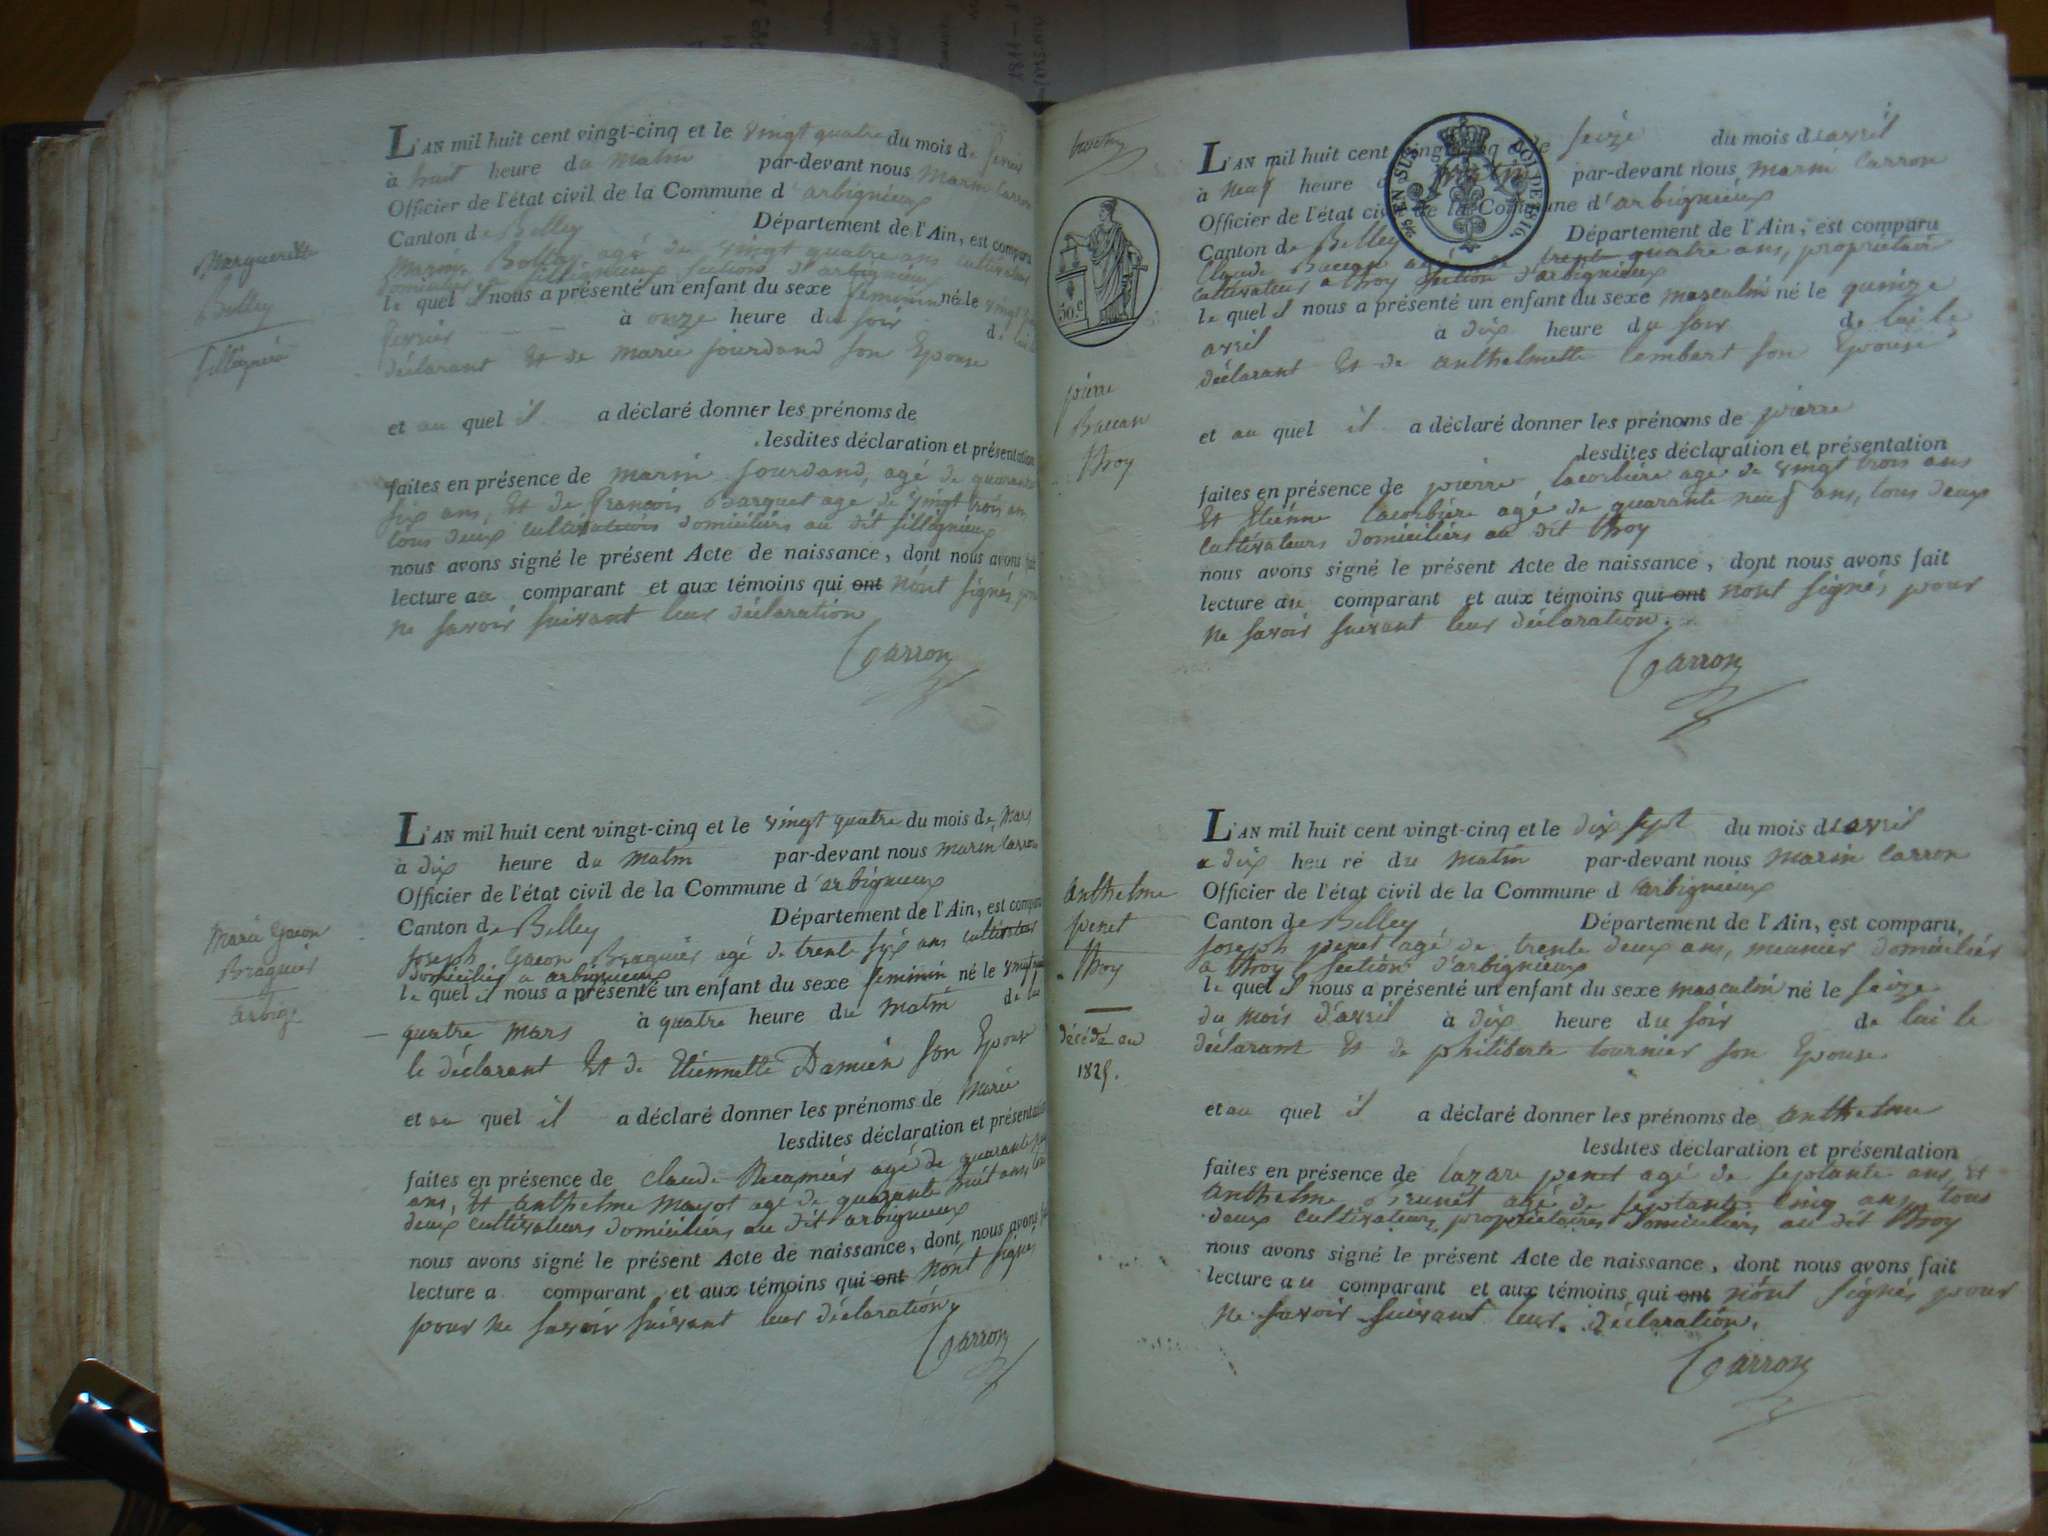 L'AN mil huit cent vingt-cinq et le vingt quatre du mois de
à huit heure du matin par-devant nous Marin Carron
Officier de l'état civil de la Commune d'arbignieux
Canton de Belley Département de l'Ain, est comparu
Marin Bolley, agé de vingt quatre ans cultivateur
domicilié a sillignieux section d'arbignieux
le quel il nous a présenté un enfant du sexe feminin né le vingt
fevrier à onze heure du soir de lui
déclarant Et de Marie Jourdand son Epouse
et au quel il a déclaré donner les prénoms de
lesdites déclaration et présentation
faites en présence de marin Jourdand, agé de quarante
six ans, Et de françois Barquet agé de vingt trois ans
tous deux cultivateurs domiciliés au dit sillignieux
nous avons signé le présent Acte de naissance, dont nous avons fait
lecture au comparant et aux témoins qui ont n'ont signés, pour
ne savoir suivant leur déclaration
Carron
Marguerite
Bolley
L'AN mil huit cent vingt-cinq et le vingt quatre du mois de Mars
à dix heure du matin par-devant nous marin Carron
Officier de l'état civil de la Commune d'arbignieux
Canton de Belley Département de l'Ain, est comparu
Joseph Gacon Braguier agé de trente six ans cultivateur
domicilié a arbignieux
le quel il nous a présenté un enfant du sexe feminin né le vingt
quatre mars à quatre heure du matin de lui
le déclarant Et de Etiennette Damien son Epouse
et au quel il a déclaré donner les prénoms de Marie
lesdites déclaration et présentation
faites en présence de claude Recamier agé de quarante
ans, Et anthelme Mayot agé de quarante huit ans, tous
deux cultivateurs domiciliés au dit arbignieux
nous avons signé le présent Acte de naissance, dont nous avons fait
lecture a comparant et aux témoins qui ont n'ont signés
pour ne savoir suivant leur déclaration
Carron
Marie Gacon
Braguier
arbig.
L'AN mil huit cent vingt-cinq et le seize du mois d'avril
à neuf heure du matin par-devant nous marin Carron
Officier de l'état civil de la Commune d'arbignieux
Canton de Belley Département de l'Ain, est comparu
Claude Baccon agé de trente quatre ans, propriétaire
cultivateur a thoy section d'arbignieux
le quel il nous a présenté un enfant du sexe masculin né le quinze
avril à dix heure du soir de lui le
déclarant Et de anthelmette Lambert son Epouse
et au quel il a déclaré donner les prénoms de pierre
lesdites déclaration et présentation
faites en présence de pierre Lacorbière agé de vingt trois ans
Et Etienne Lacorbière agé de quarante neuf ans, tous deux
cultivateurs domiciliés au dit thoy
nous avons signé le présent Acte de naissance, dont nous avons fait
lecture au comparant et aux témoins qui ont n'ont signés, pour
ne savoir suivant leur déclaration.
Carron
EN SUS
50.c
pierre
Baccon
thoy
L'AN mil huit cent vingt-cinq et le dix sept du mois d'avril
a dix heure du matin par-devant nous Marin Carron
Officier de l'état civil de la Commune d'arbignieux
Canton de Belley Département de l'Ain, est comparu
Joseph penet agé de trente deux ans, meunier domicilié
a thoy section d'arbignieux
le quel il nous a présenté un enfant du sexe masculin né le seize
du mois d'avril à dix heure du soir de lui le
déclarant Et de philiberte tournier son Epouse
et au quel il a déclaré donner les prénoms de anthelme
lesdites déclaration et présentation
faites en présence de lazare penet agé de septante ans, Et
anthelme brunet agé de septante cinq ans, tous
deux cultivateurs, propriétaires domiciliés au dit thoy
nous avons signé le présent Acte de naissance, dont nous avons fait
lecture au comparant et aux témoins qui ont n'ont signés pour
ne savoir suivant leur déclaration.
Carron
anthelme
penet
thoy
décédé au
1825.